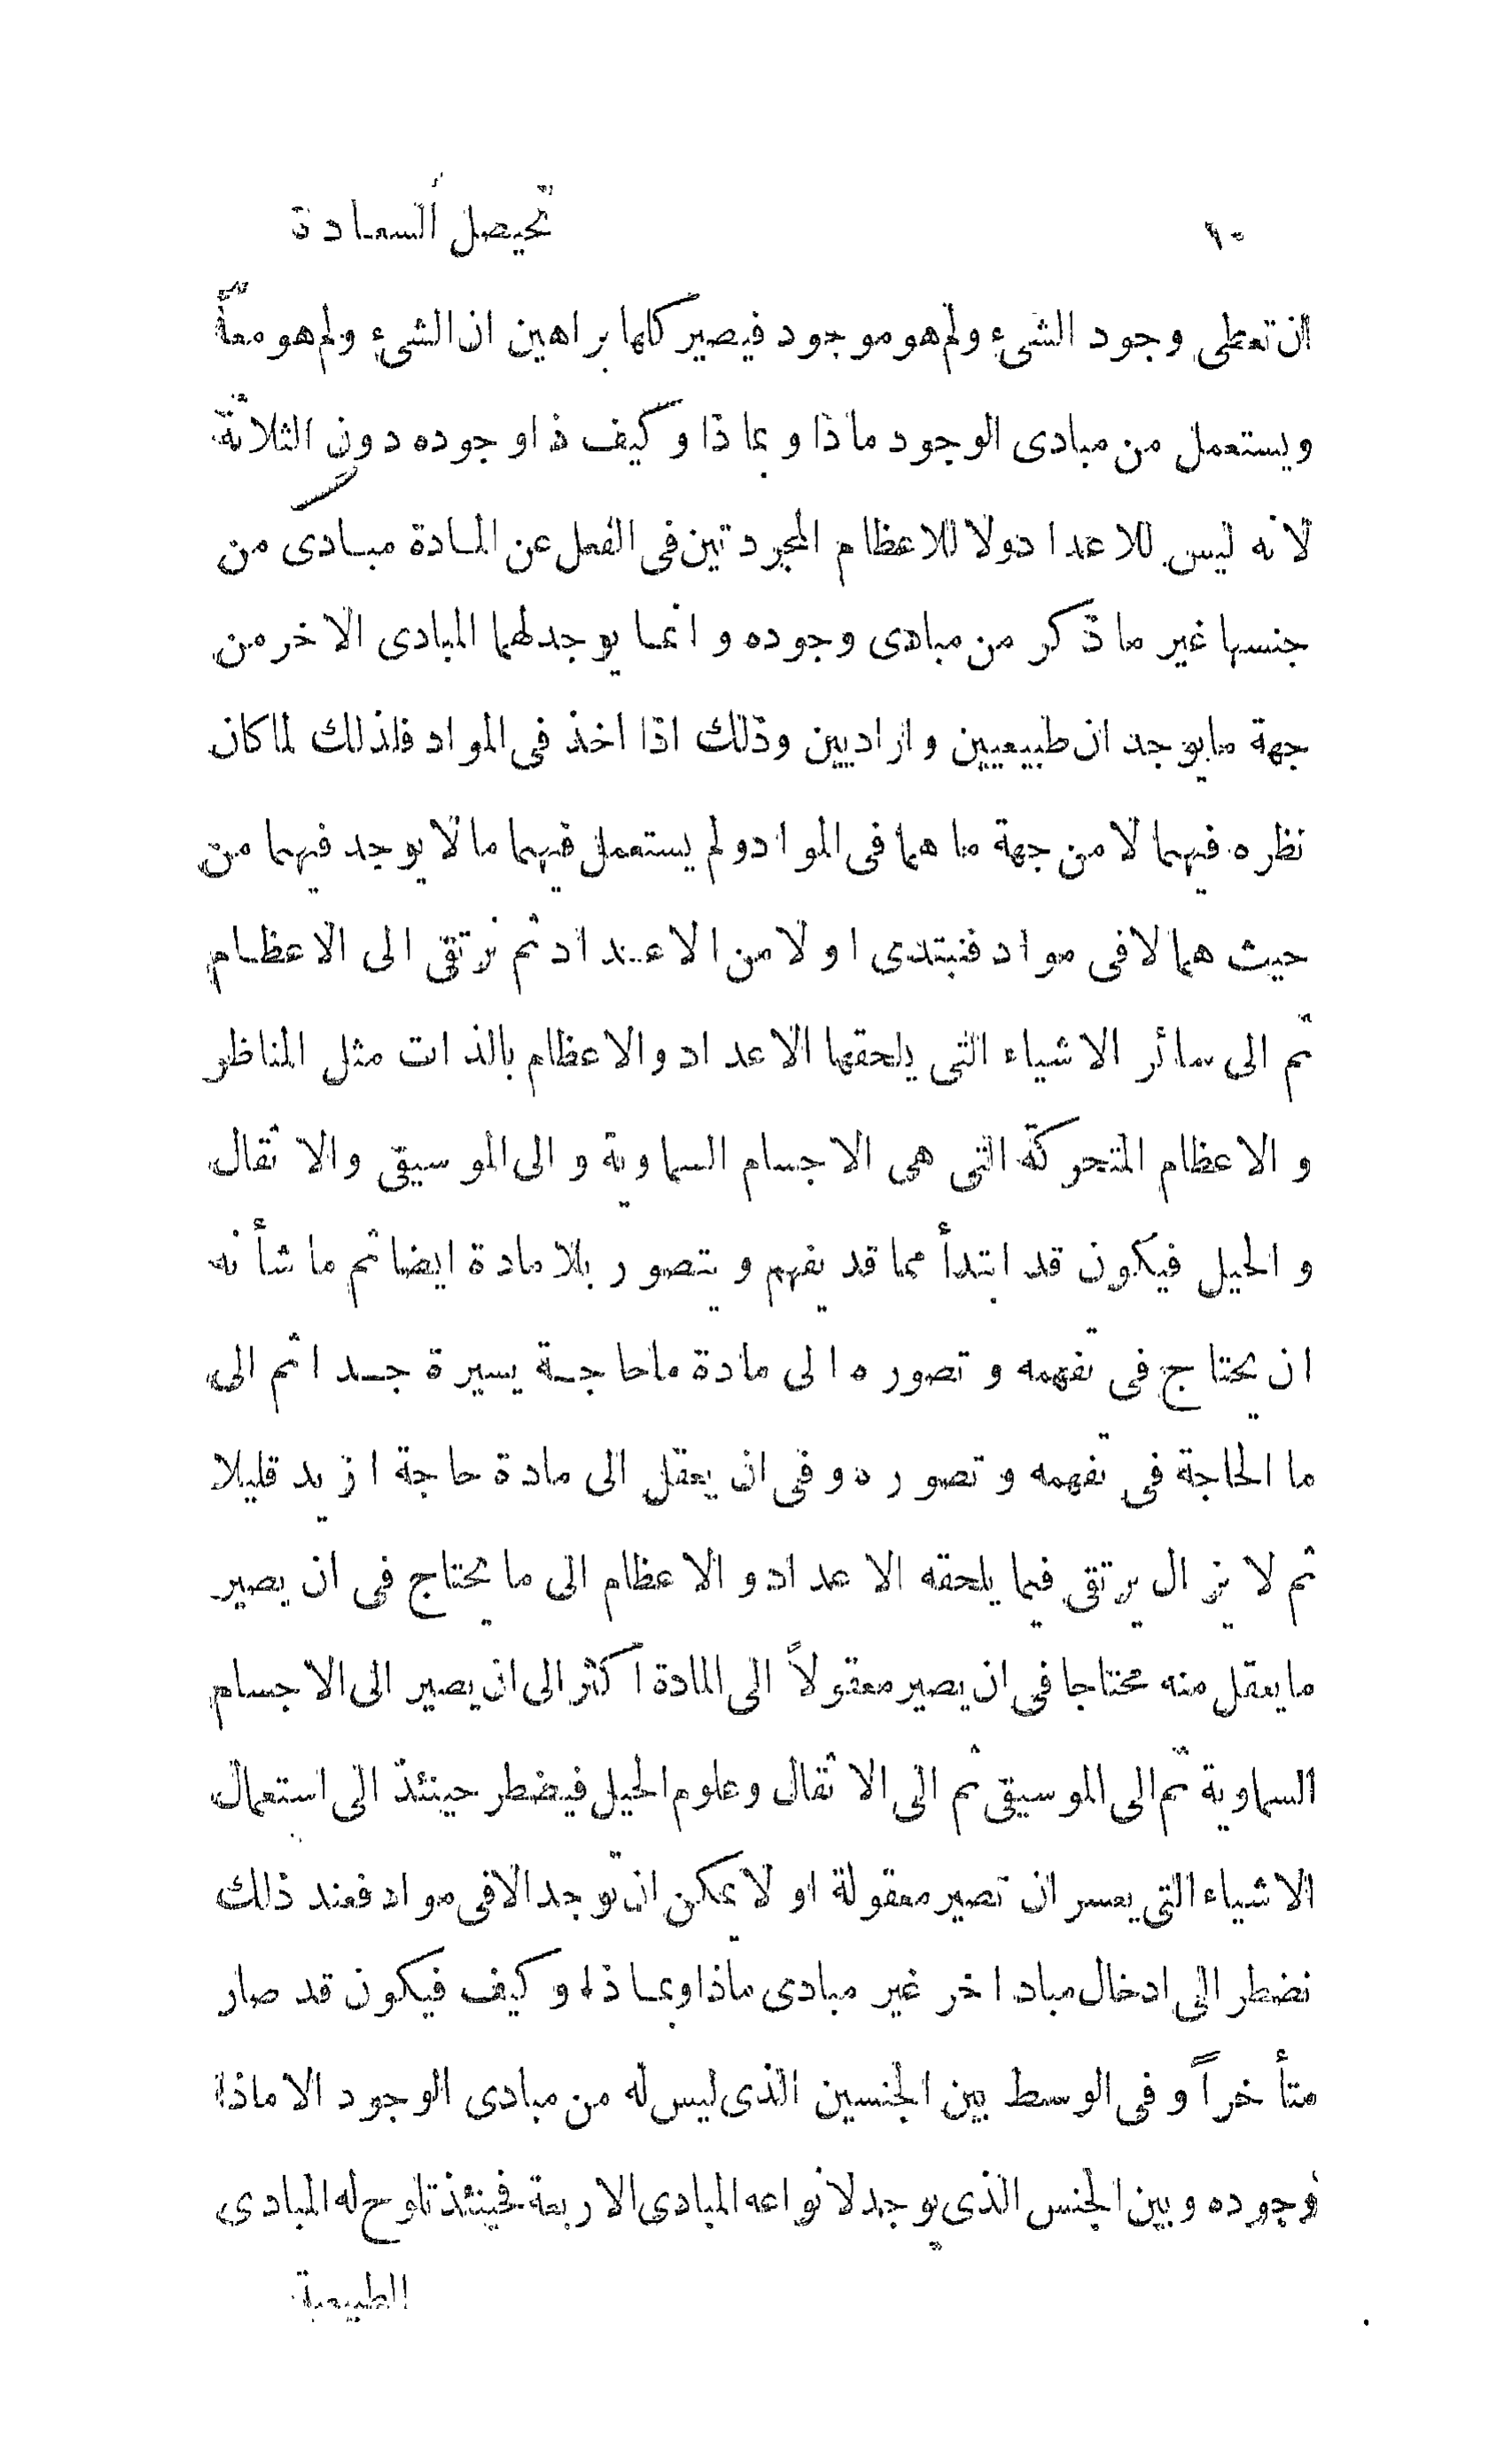 ١٠ تحيصل السعادة
ان تعطى وجود الشىء ولم هو موجود فيصير كلها براهين ان الشىء ولم هو معاً
ويستعمل من مبادى الوجود ماذا وبماذا وكيف ذا وجوده دون الثلاثة
لانه ليس للاعداد ولا للاعظام المجردتين فى الفعل عن المادة مبادى من
جنسها غير ما ذكر من مبادى وجوده وانما يوجد لهما المبادى الاخر من
جهة ما يوجدان طبيعيين واراديين وذلك اذا اخذ فى المواد فلذلك لما كان
نظره فيهما لا من جهة ما هما فى المواد ولم يستعمل فيهما مالا يوجد فيهما من
حيث هما لا فى مواد فنبتدى اولا من الاعداد ثم نرتقى الى الاعظام
ثم الى سائر الاشياء التى يلحقها الاعداد والاعظام بالذات مثل المناظر
والاعظام المتحركة التى هى الاجسام السماوية والى الموسيقى والاثقال
والحيل فيكون قد ابتدأ مما قد يفهم ويتصور بلا مادة ايضا ثم ما شأنه
ان يحتاج فى تفهمه وتصوره الى مادة ما حاجة يسيرة جدا ثم الى
ما الحاجة فى تفهمه وتصوره وفى ان يعقل الى مادة حاجة ازيد قليلا
ثم لا يزال يرتقى فيما يلحقه الاعداد والاعظام الى ما يحتاج فى ان يصير
ما يعقل منه محتاجا فى ان يصير معقولاً الى المادة اكثر الى ان يصير الى الاجسام
السماوية ثم الى الموسيقى ثم الى الاثقال وعلوم الحيل فيضطر حينئذ الى استعمال
الاشياء التى يعسر ان تصير معقولة او لا يمكن ان توجد الا فى مواد فعند ذلك
نضطر الى ادخال مباد اخر غير مبادى ماذا وبماذا وكيف فيكون قد صار
متأخراً وفى الوسط بين الجنسين الذى ليس له من مبادى الوجود الا ماذا
وجوده وبين الجنس الذى يوجد لانواعه المبادى الاربعة فحينئذ تلوح له المبادى
الطبيعية